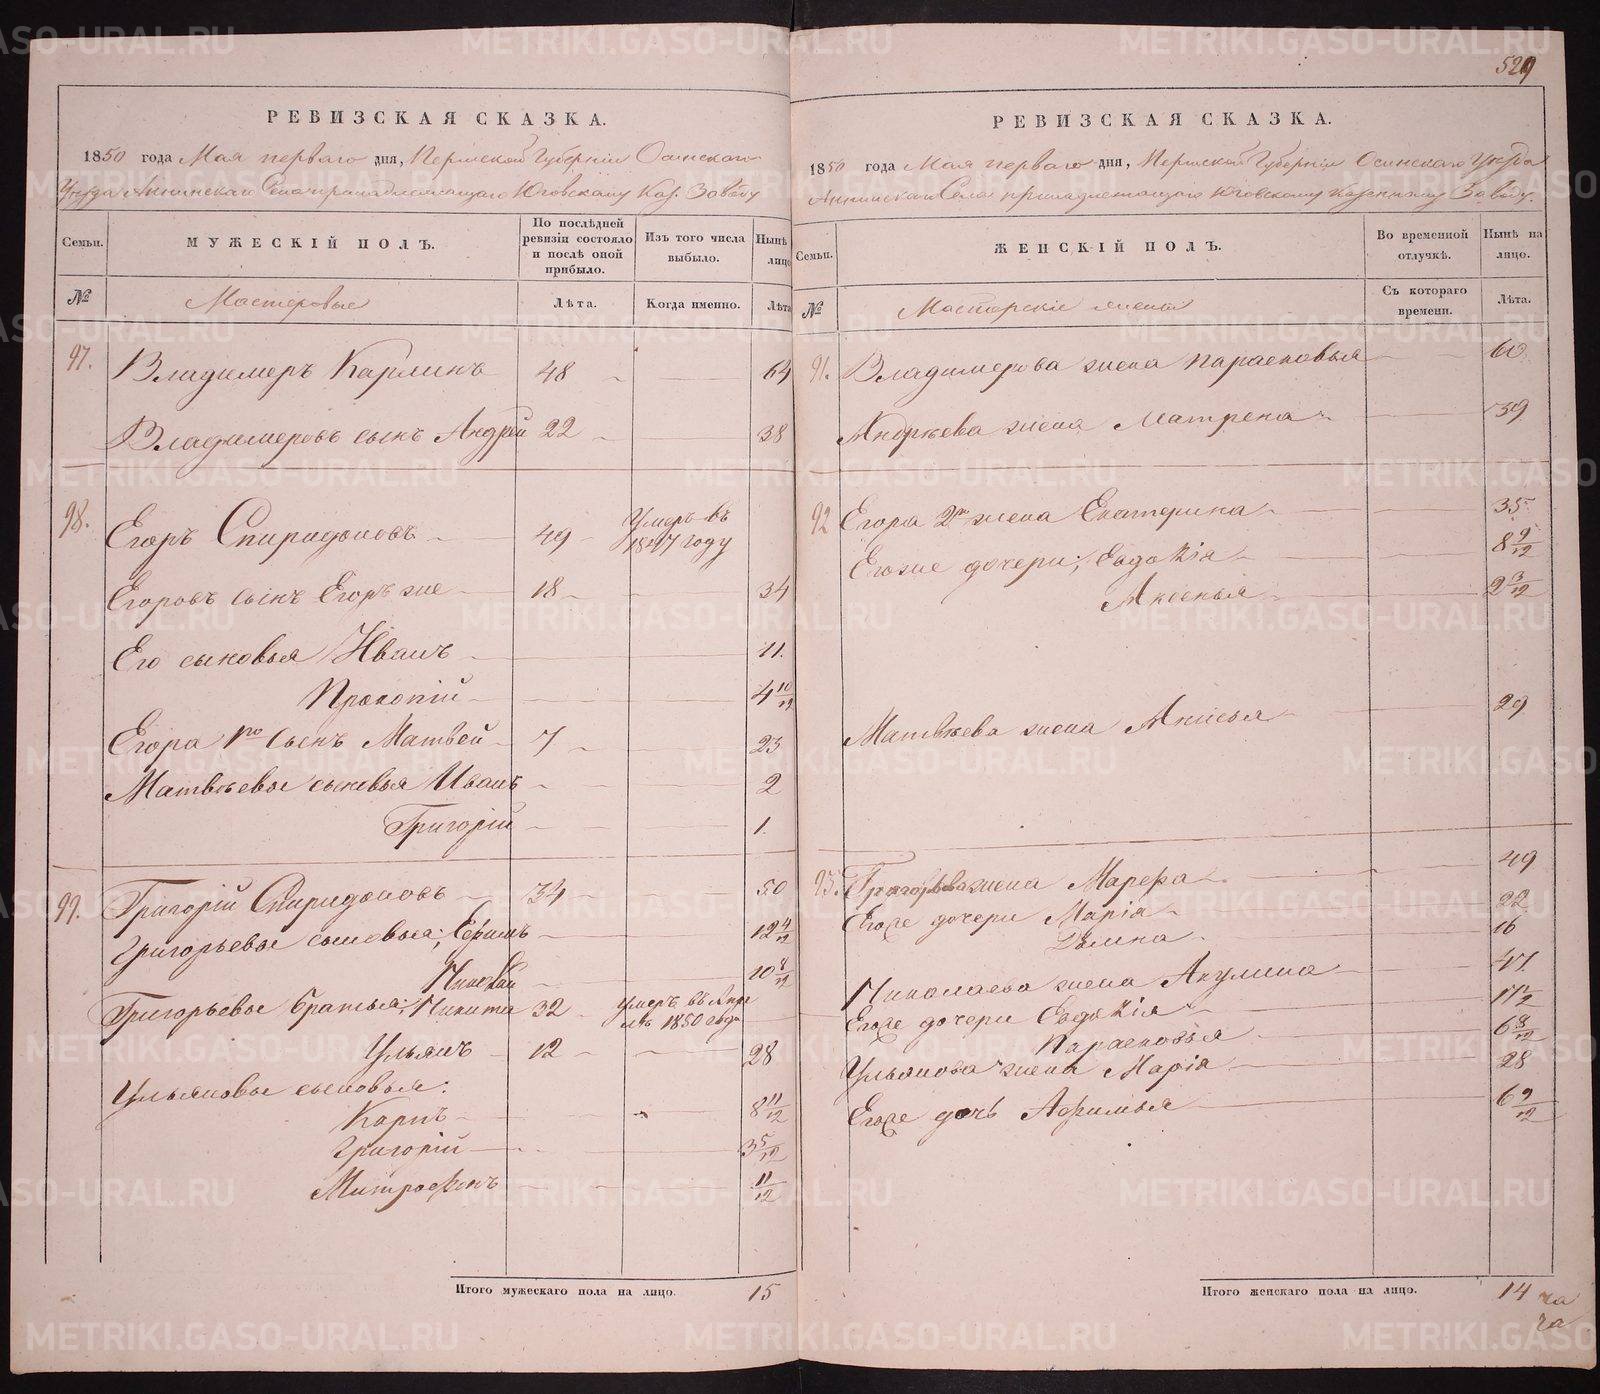 529
РЕВИЗСКАЯ СКАЗКА.
1850 года Мая перваго дня, Пермской Губернiи Осинскаго
Уѣзда Аннинскаго Села принадлежащаго Юговскому Каз. Заводу
Семьи.
МУЖЕСКІЙ ПОЛЪ.
По послѣдней ревизіи состояло и послѣ оной прибыло.
Изъ того числа выбыло.
Нынѣ лицо
№
Мастеровые
Лѣта.
Когда именно.
Лѣта
97. Владимеръ Карлинъ 48 64
Владимеровъ сынъ Андрей 22 38
98. Егоръ Спиридоновъ 49 Умеръ въ 1847 году
Егоровъ сынъ Егоръ же 18 34
Его сыновья Иванъ 11.
Прокопій 4 10/12
Егора 1го сынъ Матвей 7 23
Матвѣевы сыновья Иванъ 2
Григорій 1.
99. Григорій Спиридоновъ 34 50
Григорьевы сыновья; Ефимъ 12 4/12
10 8/12
Григорьевы братья; Никита 32 умеръ въ Апрѣлѣ 1850 года
Ульянъ 12 28
Ульяновы сыновья:
Карпъ 8 11/12
Григорій 3 5/12
Митрофанъ 11/12
Итого мужескаго пола на лицо. 15
РЕВИЗСКАЯ СКАЗКА.
1850 года Мая перваго дня, Пермской Губернiи Осинскаго Уѣзда
Аннинскаго Села принадлежащаго Юговскому Казенному Заводу.
Семьи.
ЖЕНСКІЙ ПОЛЪ.
Во временной отлучкѣ.
Нынѣ на лицо.
№
Мастерскіе
Съ котораго времени.
Лѣта.
91. Владимерова жена Парасковья 60.
Андрѣева жена Матрена 39
92 Егора 2го жена Екатерина 35
Егожие дочери; Евдокія 8 9/12
Аксенья 2 3/12
Матвѣева жена Анисья 29
93. Григорьева жена Марѳа 49
Егоже дочери Марія 22
Домна 16
Николаева жена Акулина 47.
Егоже дочери Евдокія
Парасковья 6 8/12
Ульянова жена Марія 28
Егоже дочь Афимья 6 9/12
Итого женскаго пола на лицо. 14